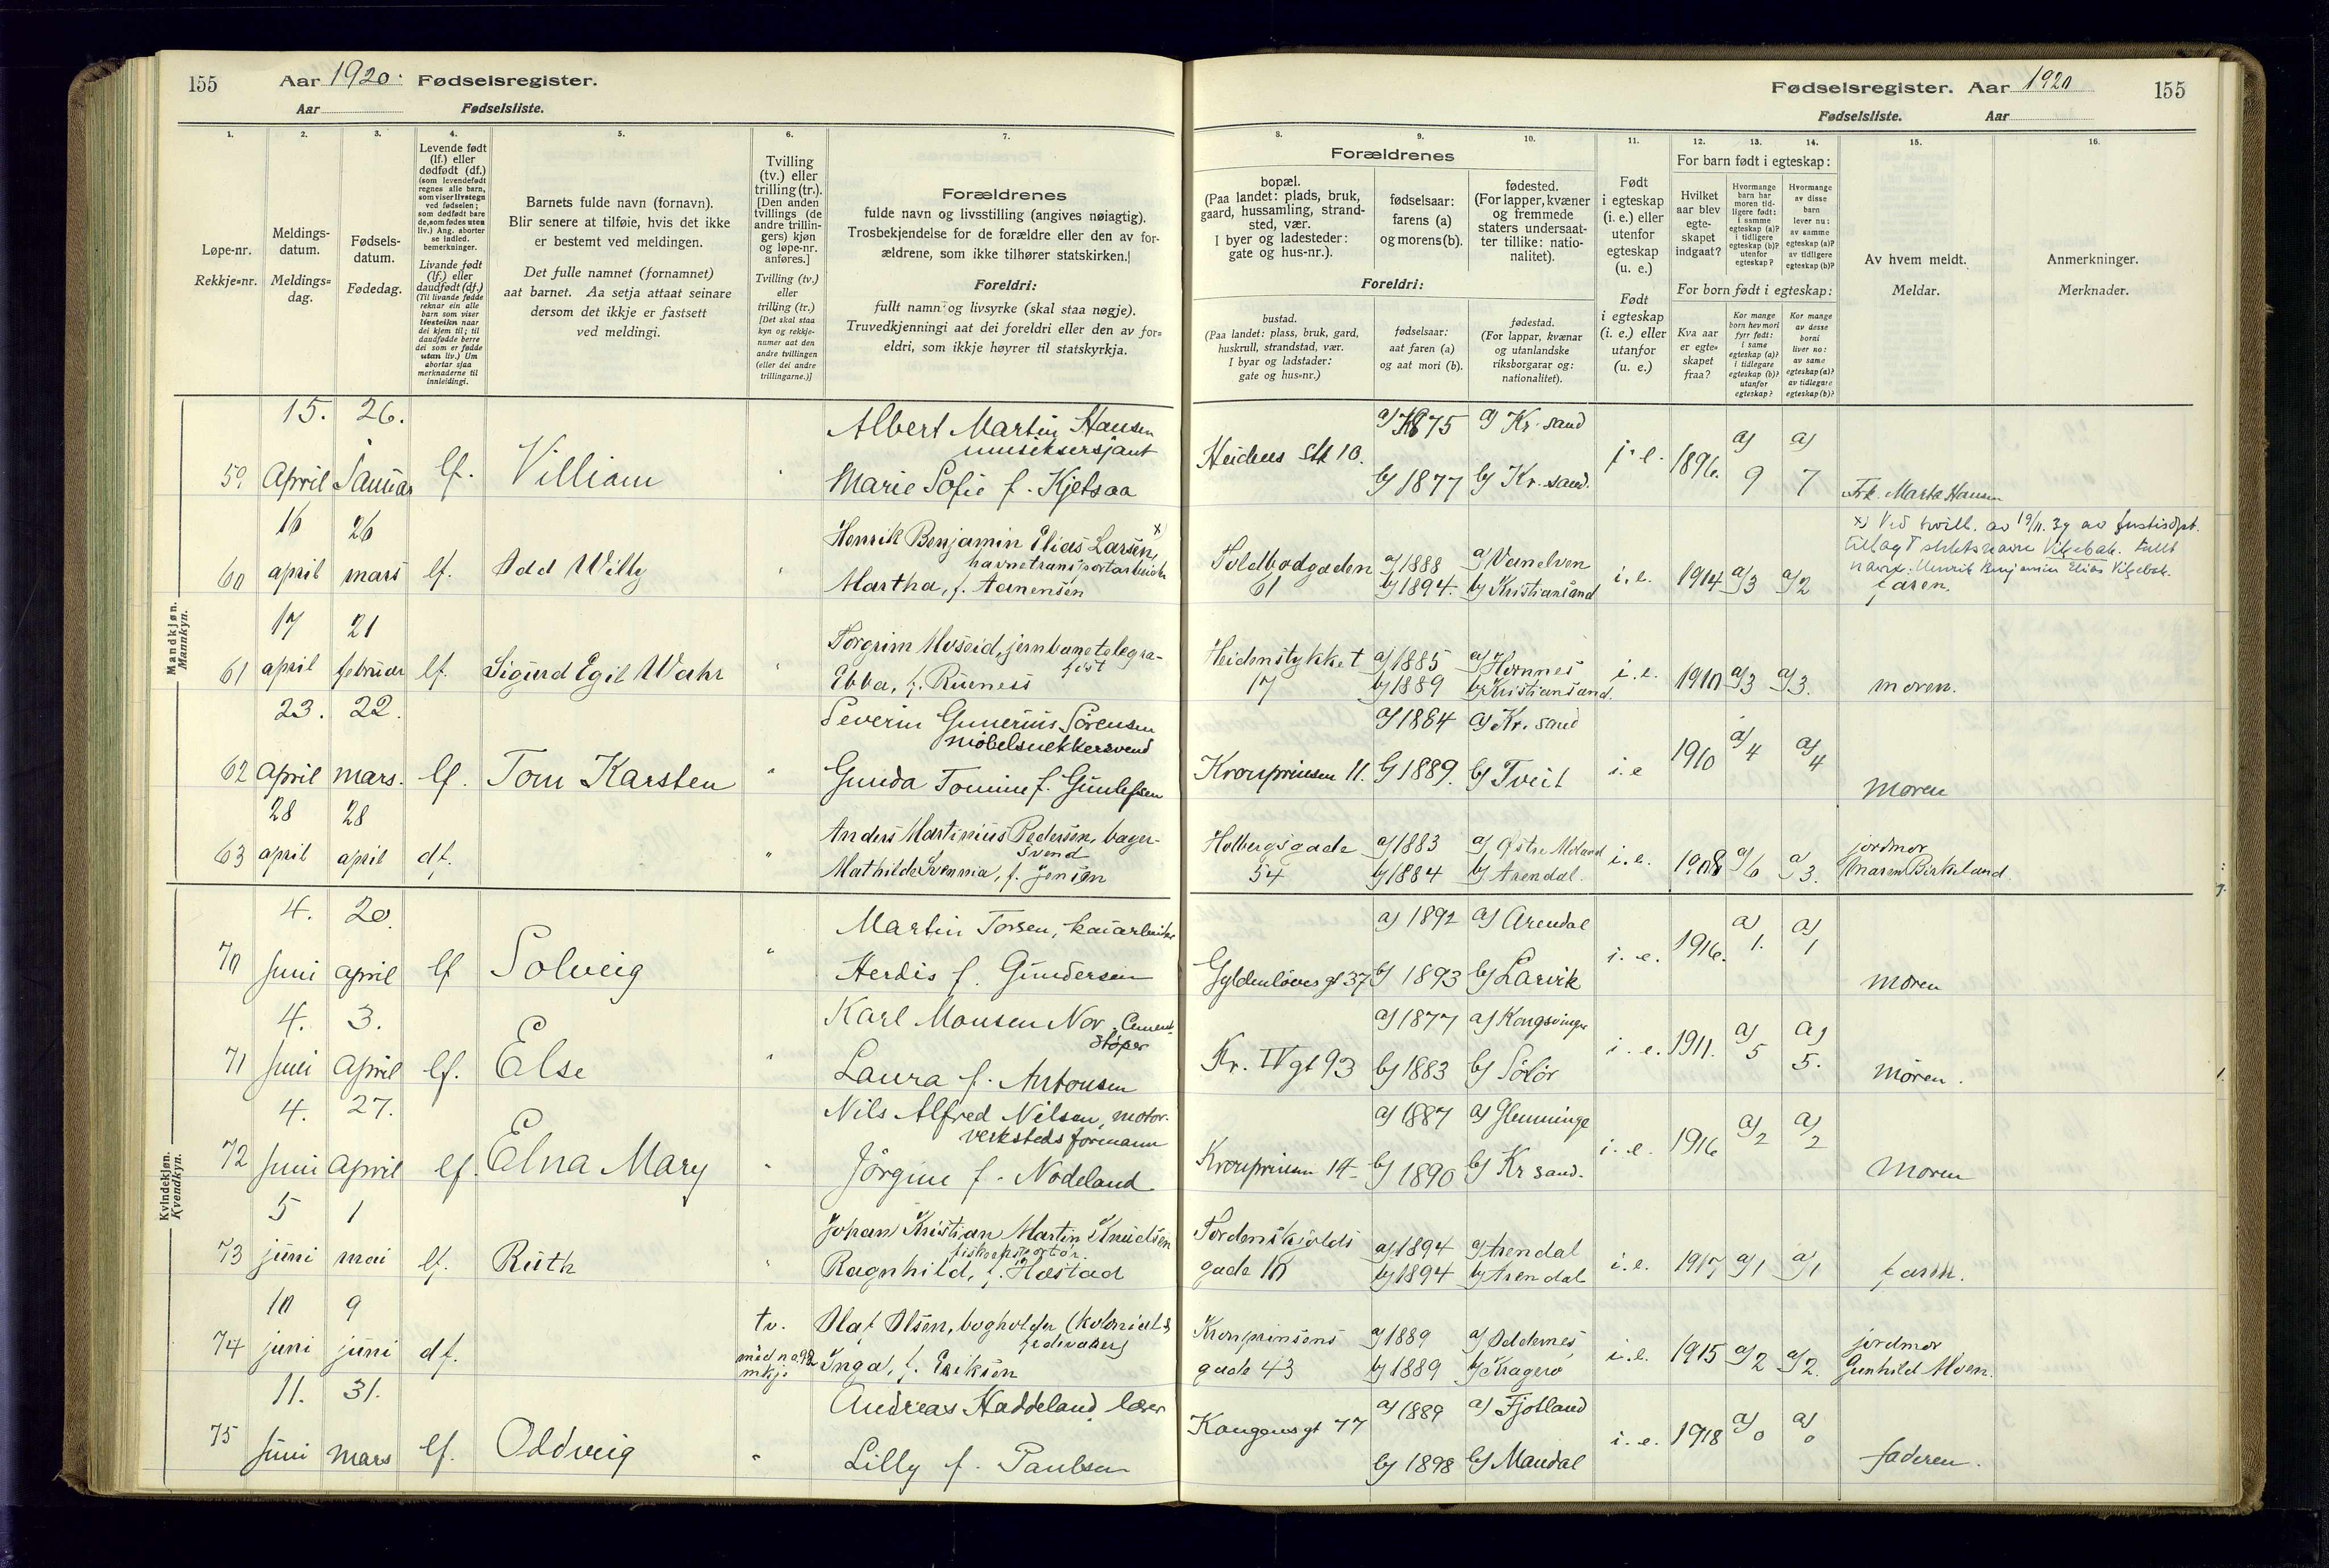 155
Aar 1920. Fødselsregister.
Aar Fødselsliste.
Fødselsregister. Aar 1920
155
Fødselsliste. Aar
1.
Løpe-nr.
Rekkje=nr.
2.
Meldings-
datum.
Meldings=
dag.
3.
Fødsels-
datum.
Fødedag.
4.
Levende født
(lf.) eller
dødfødt (df.)
(som levendefødt
regnes alle barn,
som viser livstegn
ved fødselen;
som dødfødt bare
de, som fødes uten
liv.) Ang. aborter
se indled.
bemerkninger.
Livande født
(lf.) eller
daudfødt (df.)
(Til livande fødde
reknar ein alle
barn som viser
livsteikn naar
dei kjem til; til
daudfødde berre
dei som er fødde
utan liv.) Um
abortar sjaa
merknaderne til
innleidingi.
5.
Barnets fulde navn (fornavn).
Blir senere at tilføie, hvis det ikke
er bestemt ved meldingen.
Det fulle namnet (fornamnet)
aat barnet. Aa setja attaat seinare
dersom det ikkje er fastsett
ved meldingi.
6.
Tvilling
(tv.) eller
trilling (tr.).
[Den anden
tvillings (de
andre trillin-
gers) kjøn
og løpe-nr.
anføres.]
Tvilling (tv.)
eller
trilling (tr.)
[Det skal staa
kyn og rekkje-
numer aat den
andre tvillingen
(eller dei andre
trillingarne.)]
7.
Forældrenes
fulde navn og livsstilling (angives nøiagtig).
Trosbekjendelse for de forældre eller den av for-
ældrene, som ikke tilhører statskirken.
Foreldri:
fullt namn og livsyrke (skal staa nøgje).
Truvedkjenningi aat dei foreldri eller den av for=
eldri, som ikkje høyrer til statskyrkja.
Forældrenes
8.
bopæl.
(Paa landet: plads, bruk,
gaard, hussamling, strand-
sted, vær.
I byer og ladesteder:
gate og hus-nr.).
Foreldri:
bustad.
(Paa landet: plass, bruk, gard,
huskrull, strandstad, vær.
I byar og ladstader:
gate og hus=nr.)
9.
fødselsaar:
farens (a)
og morens (b).
fødselsaar:
aat faren (a)
og aat mori (b).
10.
fødested.
(For lapper, kvæner
og fremmede
staters undersaat-
ter tillike: natio-
nalitet).
fødestad.
(For lappar, kvænar
og utanlandske
riksborgarar og:
nationalitet).
11.
Født
i egteskap
(i. e.) eller
utenfor
egteskap
(u. e.)
Født
i egteskap
(i. e.) eller
utanfor
(u. e.)
For barn født i egteskap:
12.
Hvilket
aar blev
egte-
skapet
indgaat?
13.
Hvormange
barn har
moren tid-
ligere født:
i samme
egteskap (a)?
i tidligere
egteskap (b)?
utenfor
egteskap?
14.
Hvormange
av disse
barn
lever nu:
av samme
egteskap (a)?
av tidligere
egteskap (b)?
For born født i egteskap:
Kva aar
er egte=
skapet
fraa?
Kor mange
born hev mori
fyrr født:
i same
egteskap (a)?
i tidlegare
egteskap (b)?
utanfor
egteskap?
Kor mange
av desse
borni
liver no:
av same
egteskap (a)?
av tidlegare
egteskap (b)?
15.
Av hvem meldt.
Meldar.
16.
Anmerkninger.
Merknader.
Mandkjøn.
Mannkyn.
59 15. April 26. Januar lf. Villiam " Albert Martin Hansen
musiksersjant
Marie Sofie f. Kjetsaa
Heidens stk 10. a) 1875 b) 1877 a) Kr. sand b) Kr. sand. i. e. 1896. a) 9 a) 7 Frk. Marta Hansen
60 16 april 26 mars lf. Odd Willy " Henrik Benjamin Elias Larsen, x)
havnetransportarbeider
Martha, f. Aanensen
Toldbodgaden 61 a) 1888 b) 1894. a) Vanelven b) Kristiansand i. e. 1914 a) 3 a) 2
x) Ved bevill. av 19/11. 39 av Justisdpt.
tillagt slektsnavn Vigebak. Fullt
navn. Henrik Benjamin Elias Vigebak.
faren.
61 17 april 21 februar lf. Sigurd Egil Wahr " Torgrim Moseid, jernbanetelegra-
fist
Ebba, f. Rueness
Heidenstykket 17 a) 1885 b) 1889 a) Hornnes b) Kristiansand. i. e. 1910 a) 3 a) 3. moren.
62 23. April 22. mars. lf. Tom Karsten " Severin Gunerius Sørensen
møbelsnekkersvend
Gunda Tomine f. Gunlefsen
Kronprinsen 11. a) 1884 b) 1889. a) Kr. sand b) Tveit i. e 1910 a) 4 a) 4 moren
63 28 april 28 april df. " Anders Martinius Pedersen, bager-
svend
Mathilde Svennia, f. Jensen
Holbergsgade 54 a) 1883 b) 1884 a) Østre Moland b) Arendal. i. e. 1908 a) 6 a) 3. jordmor
Maren Birkeland.
Kvindekjøn.
Kvendkyn.
70 4. Juni 20. april lf Solveig " Martin Torsen, kaiarbeider
Herdis f. Gundersen
Gyldenløves gt 37 a) 1892 b) 1893 a) Arendal b) Larvik i. e. 1916. a) 1. a) 1 moren
71 4. Juni 3. April lf. Else " Karl Monsen Nor, Cement-
støper
Laura f. Antonsen
Kr. IV gt 93 a) 1877 b) 1883 a) Kongsvinger b) Solør i. e. 1911. a) 5 a) 5. moren.
72 4. Juni 27. April lf. Elna Mary " Nils Alfred Nilsen, motor-
verksteds formann
Jørgine f. Nodeland
Kronprinsen 14 a) 1887 b) 1890 a) Glemminge b) Kr sand. i. e. 1916 a) 2 a) 2 Moren
73 5 juni 1 mai lf. Ruth " Johan Kristian Martin Knudsen
fiskeeksportør.
Ragnhild, f. Hæstad
Tordenskjolds
gade 10 a) 1894 b) 1894 a) Arendal b) Arendal i. e. 1917 a) 1 a) 1 faren.
74 10 juni 9 juni df. tv.
med no 92
mkj. Olaf Olsen, bogholder (kolonial &
fedevarer)
Inga, f. Eriksen
Kronprinsens
gade 43 a) 1889 b) 1889 a) Oddernes b) Kragerø i. e. 1915 a) 2 a) 2. jordmor
Gunhild Moen.
75 11. Juni 31. mars lf. Oddveig " Andreas Haddeland, lærer
Lilly f. Paulsen
Kongensgt 77 a) 1889 b) 1898 a) Fjotland b) Mandal i. e. 1918 a) 0 a) 0 faderen.